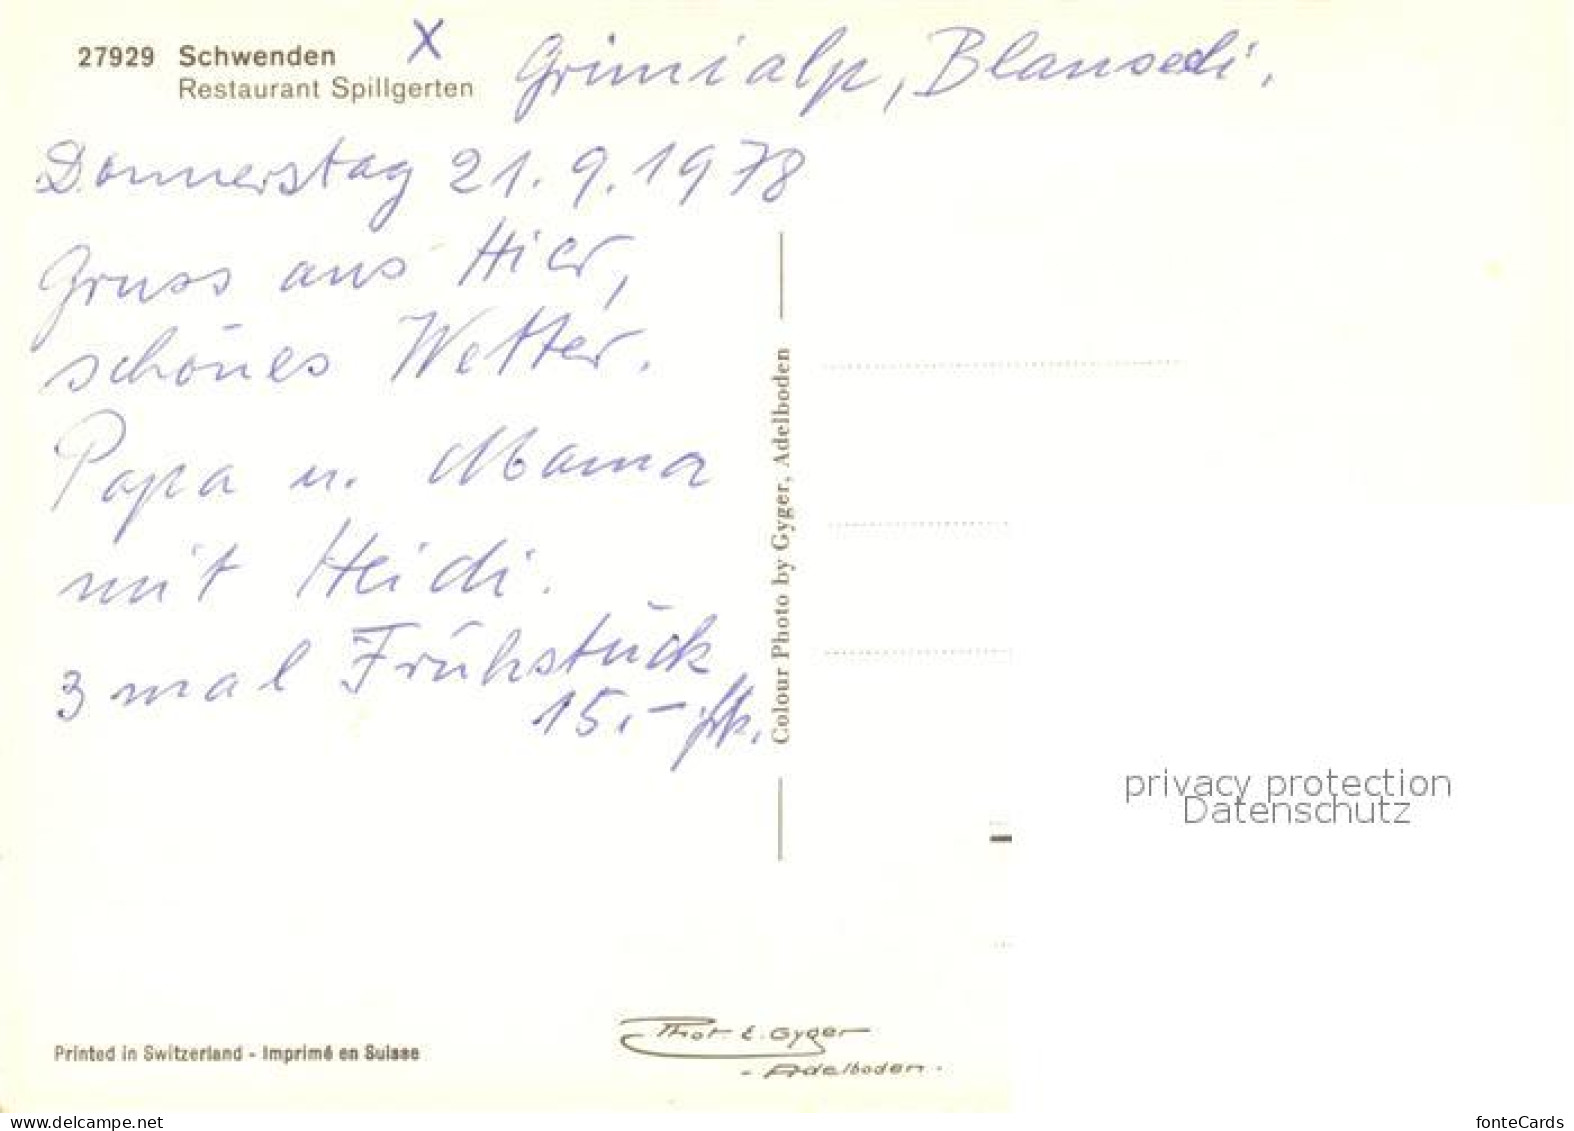 27929 Schwenden X Grimialp, Blausedi.
Restaurant Spillgerten
Donnerstag 21.9.1978
Gruss aus Hier,
schönes Wetter.
Papa u. Mama
mit Heidi.
3 mal Frühstück
15.- frk.
Colour Photo by Gyger, Adelboden
privacy protection
Datenschutz
Phot. E. Gyger
- Adelboden -
Printed in Switzerland - Imprimé en Suisse
www.delcampe.net
fonteCards